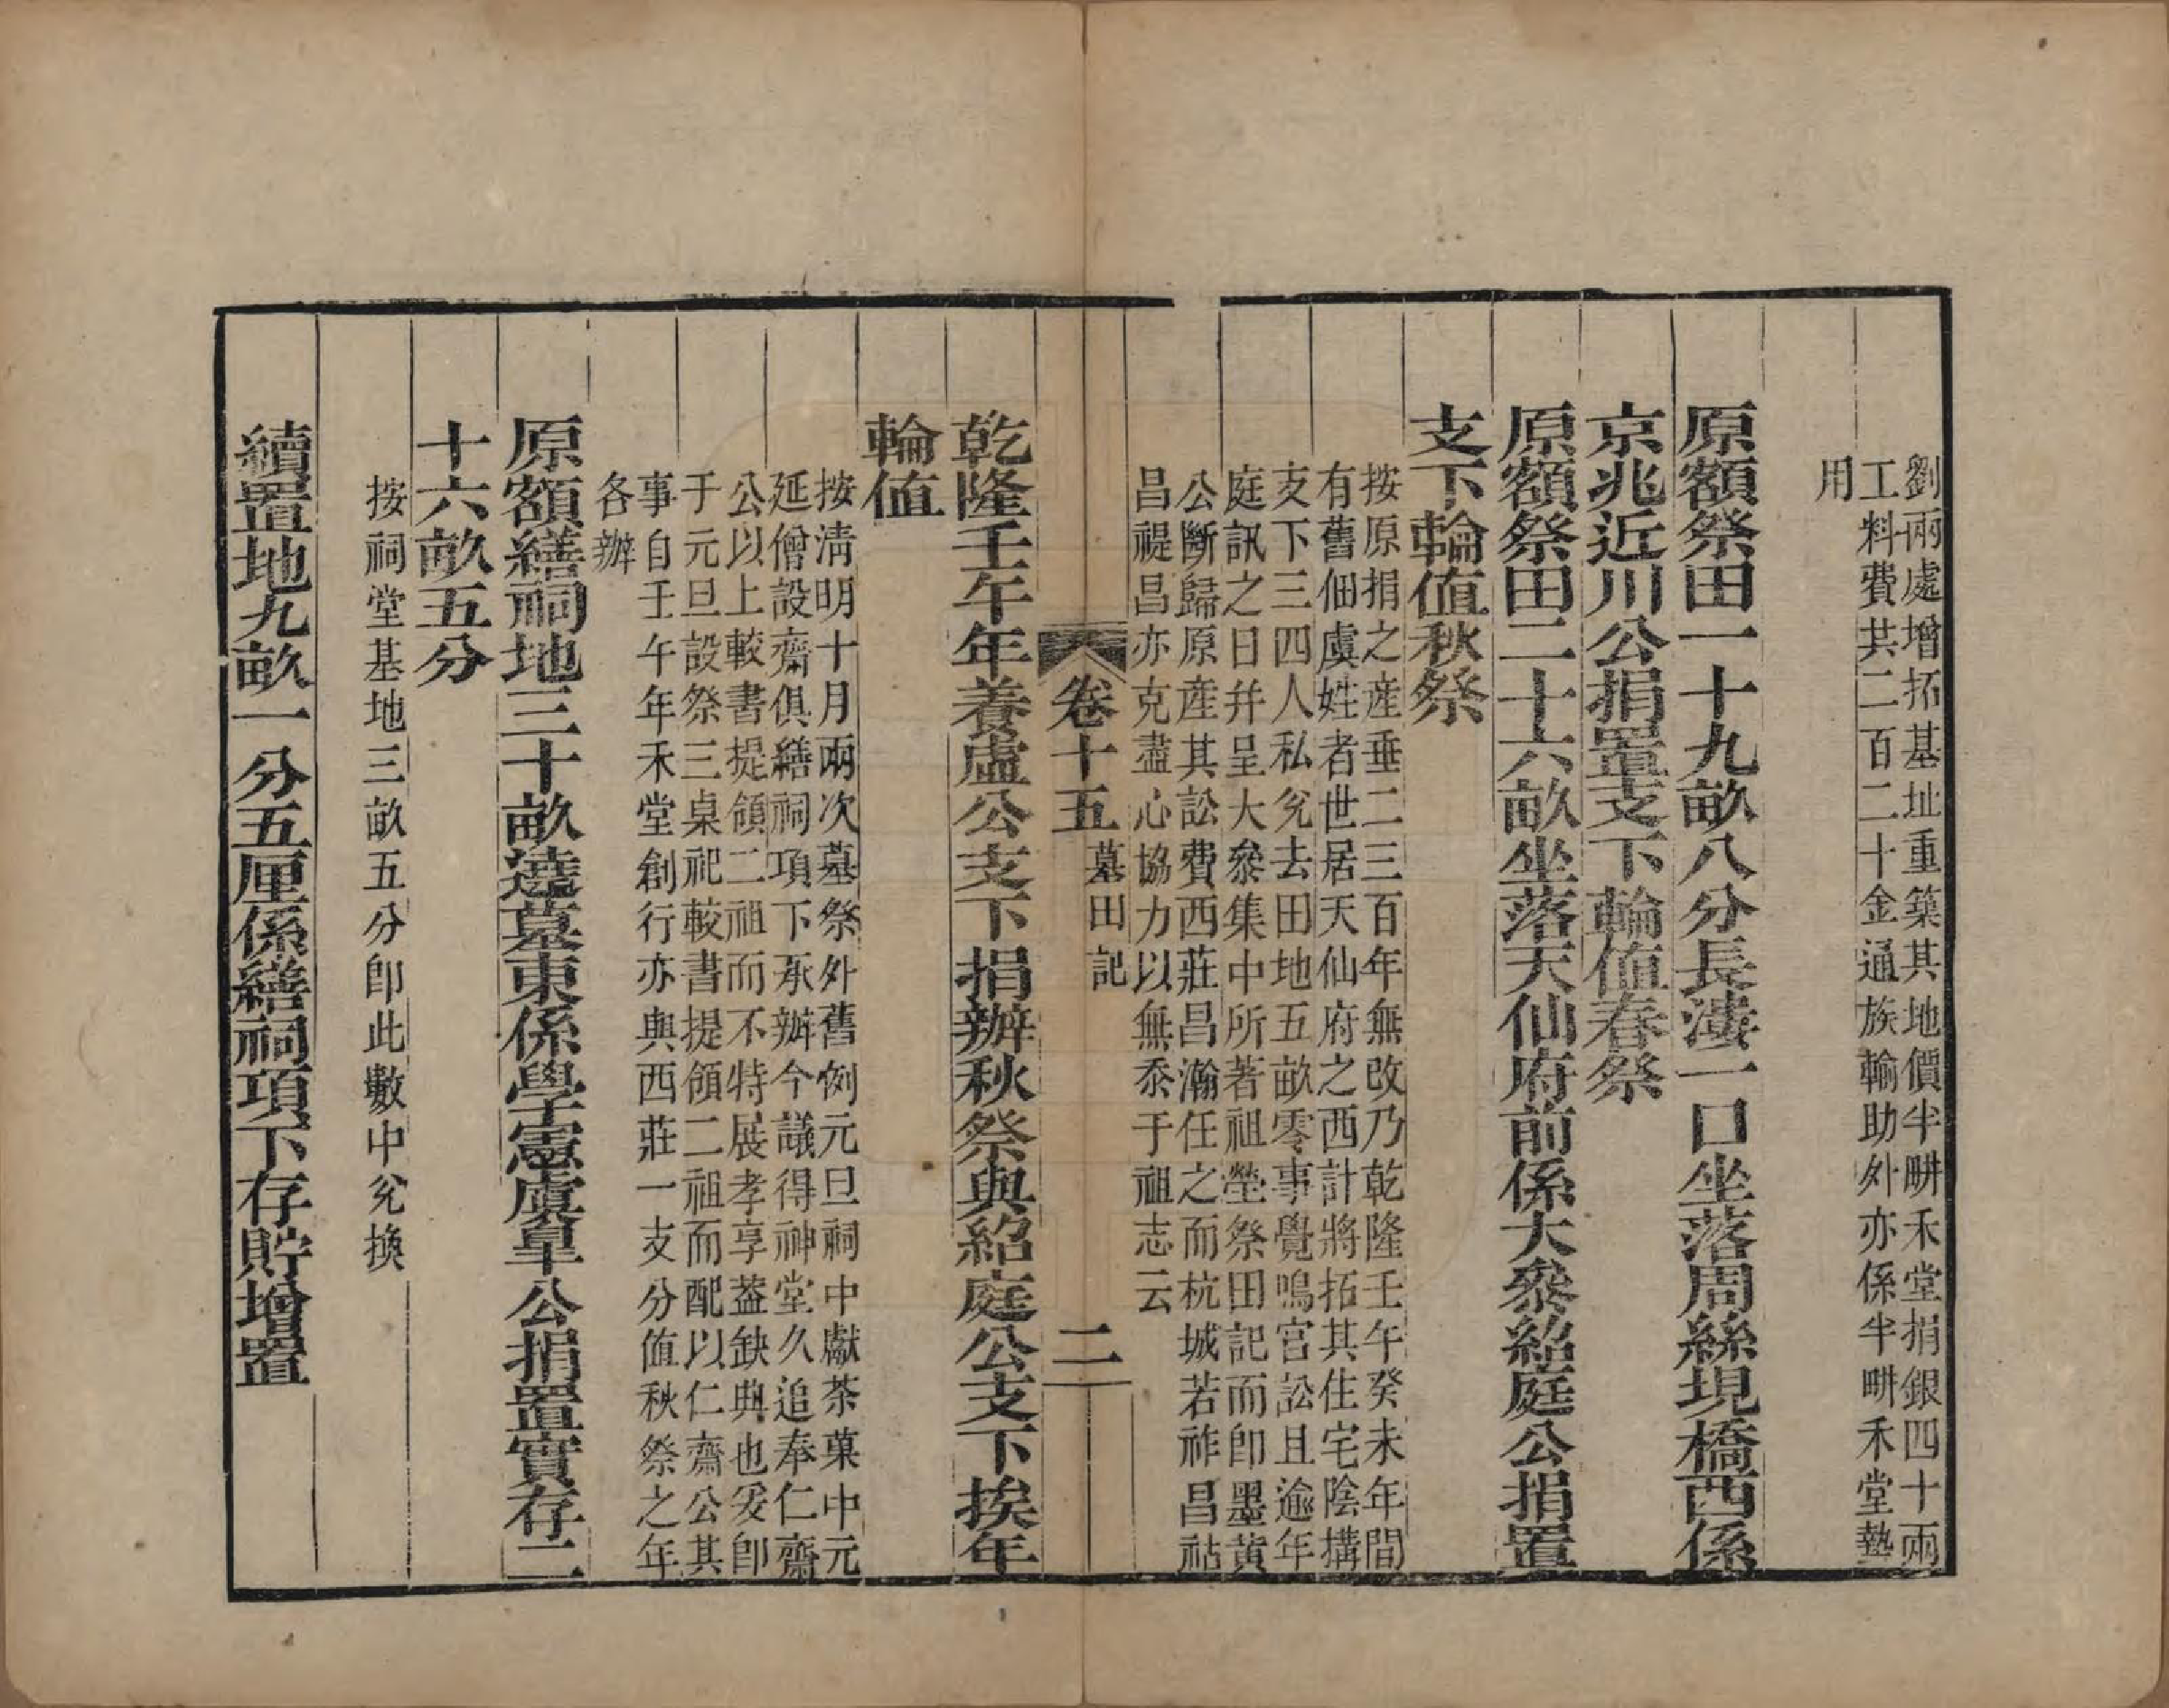 劉兩處增拓基址重築其地價半畊禾堂捐銀四十兩
工料費共二百二十金通族輸助外亦係半畊禾堂墊
用
原額祭田一十九畝八分長漊一口坐落周絲垷橋西係
京兆近川公捐置支下輪值春祭
原額祭田二十六畝坐落天仙府前係大參紹庭公捐置
支下輪值秋祭
按原捐之產垂二三百年無改乃乾隆壬午癸未年間
有舊佃虞姓者世居天仙府之西計將拓其住宅陰搆
支下三四人私兌去田地五畝零事覺鳴官訟且逾年
庭訊之日幷呈大參集中所著祖塋祭田記而卽墨黃
公斷歸原產其訟費西莊昌瀚任之而杭城若祚昌祜
昌禔昌亦克盡心協力以無忝于祖志云
卷十五 墓田記 二
乾隆壬午年養盧公支下捐辦秋祭與紹庭公支下挨年
輪值
按淸明十月兩次墓祭外舊例元旦祠中獻茶菓中元
延僧設齋俱繕祠項下承辦今議得神堂久追奉仁齋
公以上較書提領二祖而不特展孝享葢缺典也爰卽
于元旦設祭三桌祀較書提領二祖而配以仁齋公其
事自壬午年禾堂創行亦與西莊一支分值秋祭之年
各辦
原額繕祠地三十畝遶墓東係學憲虞臯公捐置實存二
十六畝五分
按祠堂基地三畝五分卽此數中兌換
續置地九畝一分五厘係繕祠項下存貯增置